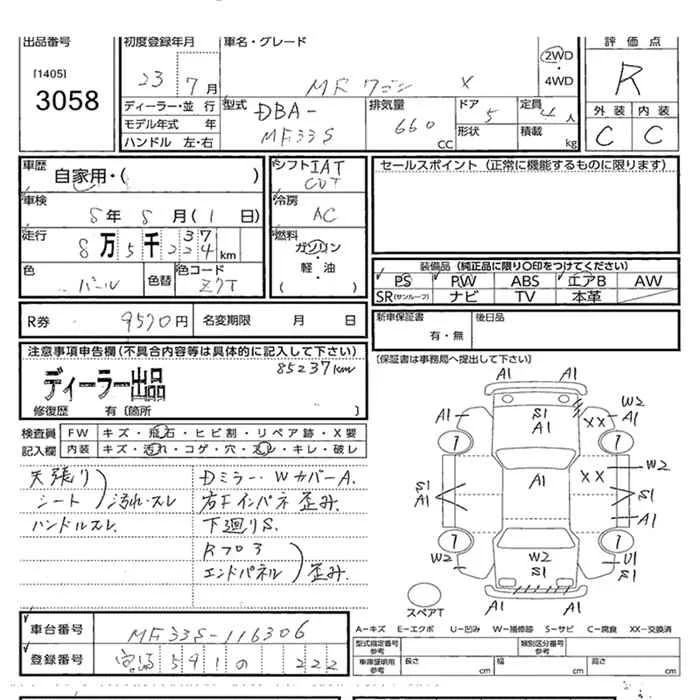 出品番号
[1405]
3058
初度登録年月
23年 7月
車名・グレード
MRワゴン X
2WD
・
4WD
評価点
R
外装 内装
C C
ディーラー・並行
モデル年式 年
ハンドル 左・右
型式
DBA-
MF33S
排気量
660
CC
ドア 5
形状
定員 4人
積載 kg
車歴
自家用・( )
車検
5年 5月(1日)
走行
8万5千 237 km
224
色
パール
色替
色コード
Z7T
シフト IAT
CVT
冷房
AC
燃料
ガソリン
・
軽・油
( )
セールスポイント (正常に機能するものに限ります)
装備品 (純正品に限り○印をつけてください)
PS PW ABS エアB AW
SR(サンルーフ) ナビ TV 本革
R券 9570円 名変期限 月 日
新車保証書
有・無
後日品
(保証書は事務局へ提出して下さい)
注意事項申告欄(不具合内容等は具体的に記入して下さい)
85237km
ディーラー出品
修復歴 有〔箇所 〕
検査員 FW キズ・飛石・ヒビ割・リペア跡・X要
記入欄 内装 キズ・汚れ・コゲ・穴・スレ・キレ・破レ
天張り
シート 汚れ・スレ
ハンドルスレ
Dミラー・WカバーA.
右Fインパネ歪み.
下廻りS.
Rフロア
エンドパネル 歪み.
A1 A1
S1
A1
W2
A1
XX
A1
7 7
A1
S1
A1
XX
W2
S1
A1
7 7
W2
W2
S1
U1
S1
A1 S1
スペアT
A-キズ E-エクボ U-凹み W-補修跡 S-サビ C-腐食 XX-交換済
車台番号 MF33S-116306
登録番号 宮崎 591 の 222
型式指定番号
参考
類別区分番号
参考
車庫証明用
参考
長さ cm 幅 cm 高さ cm